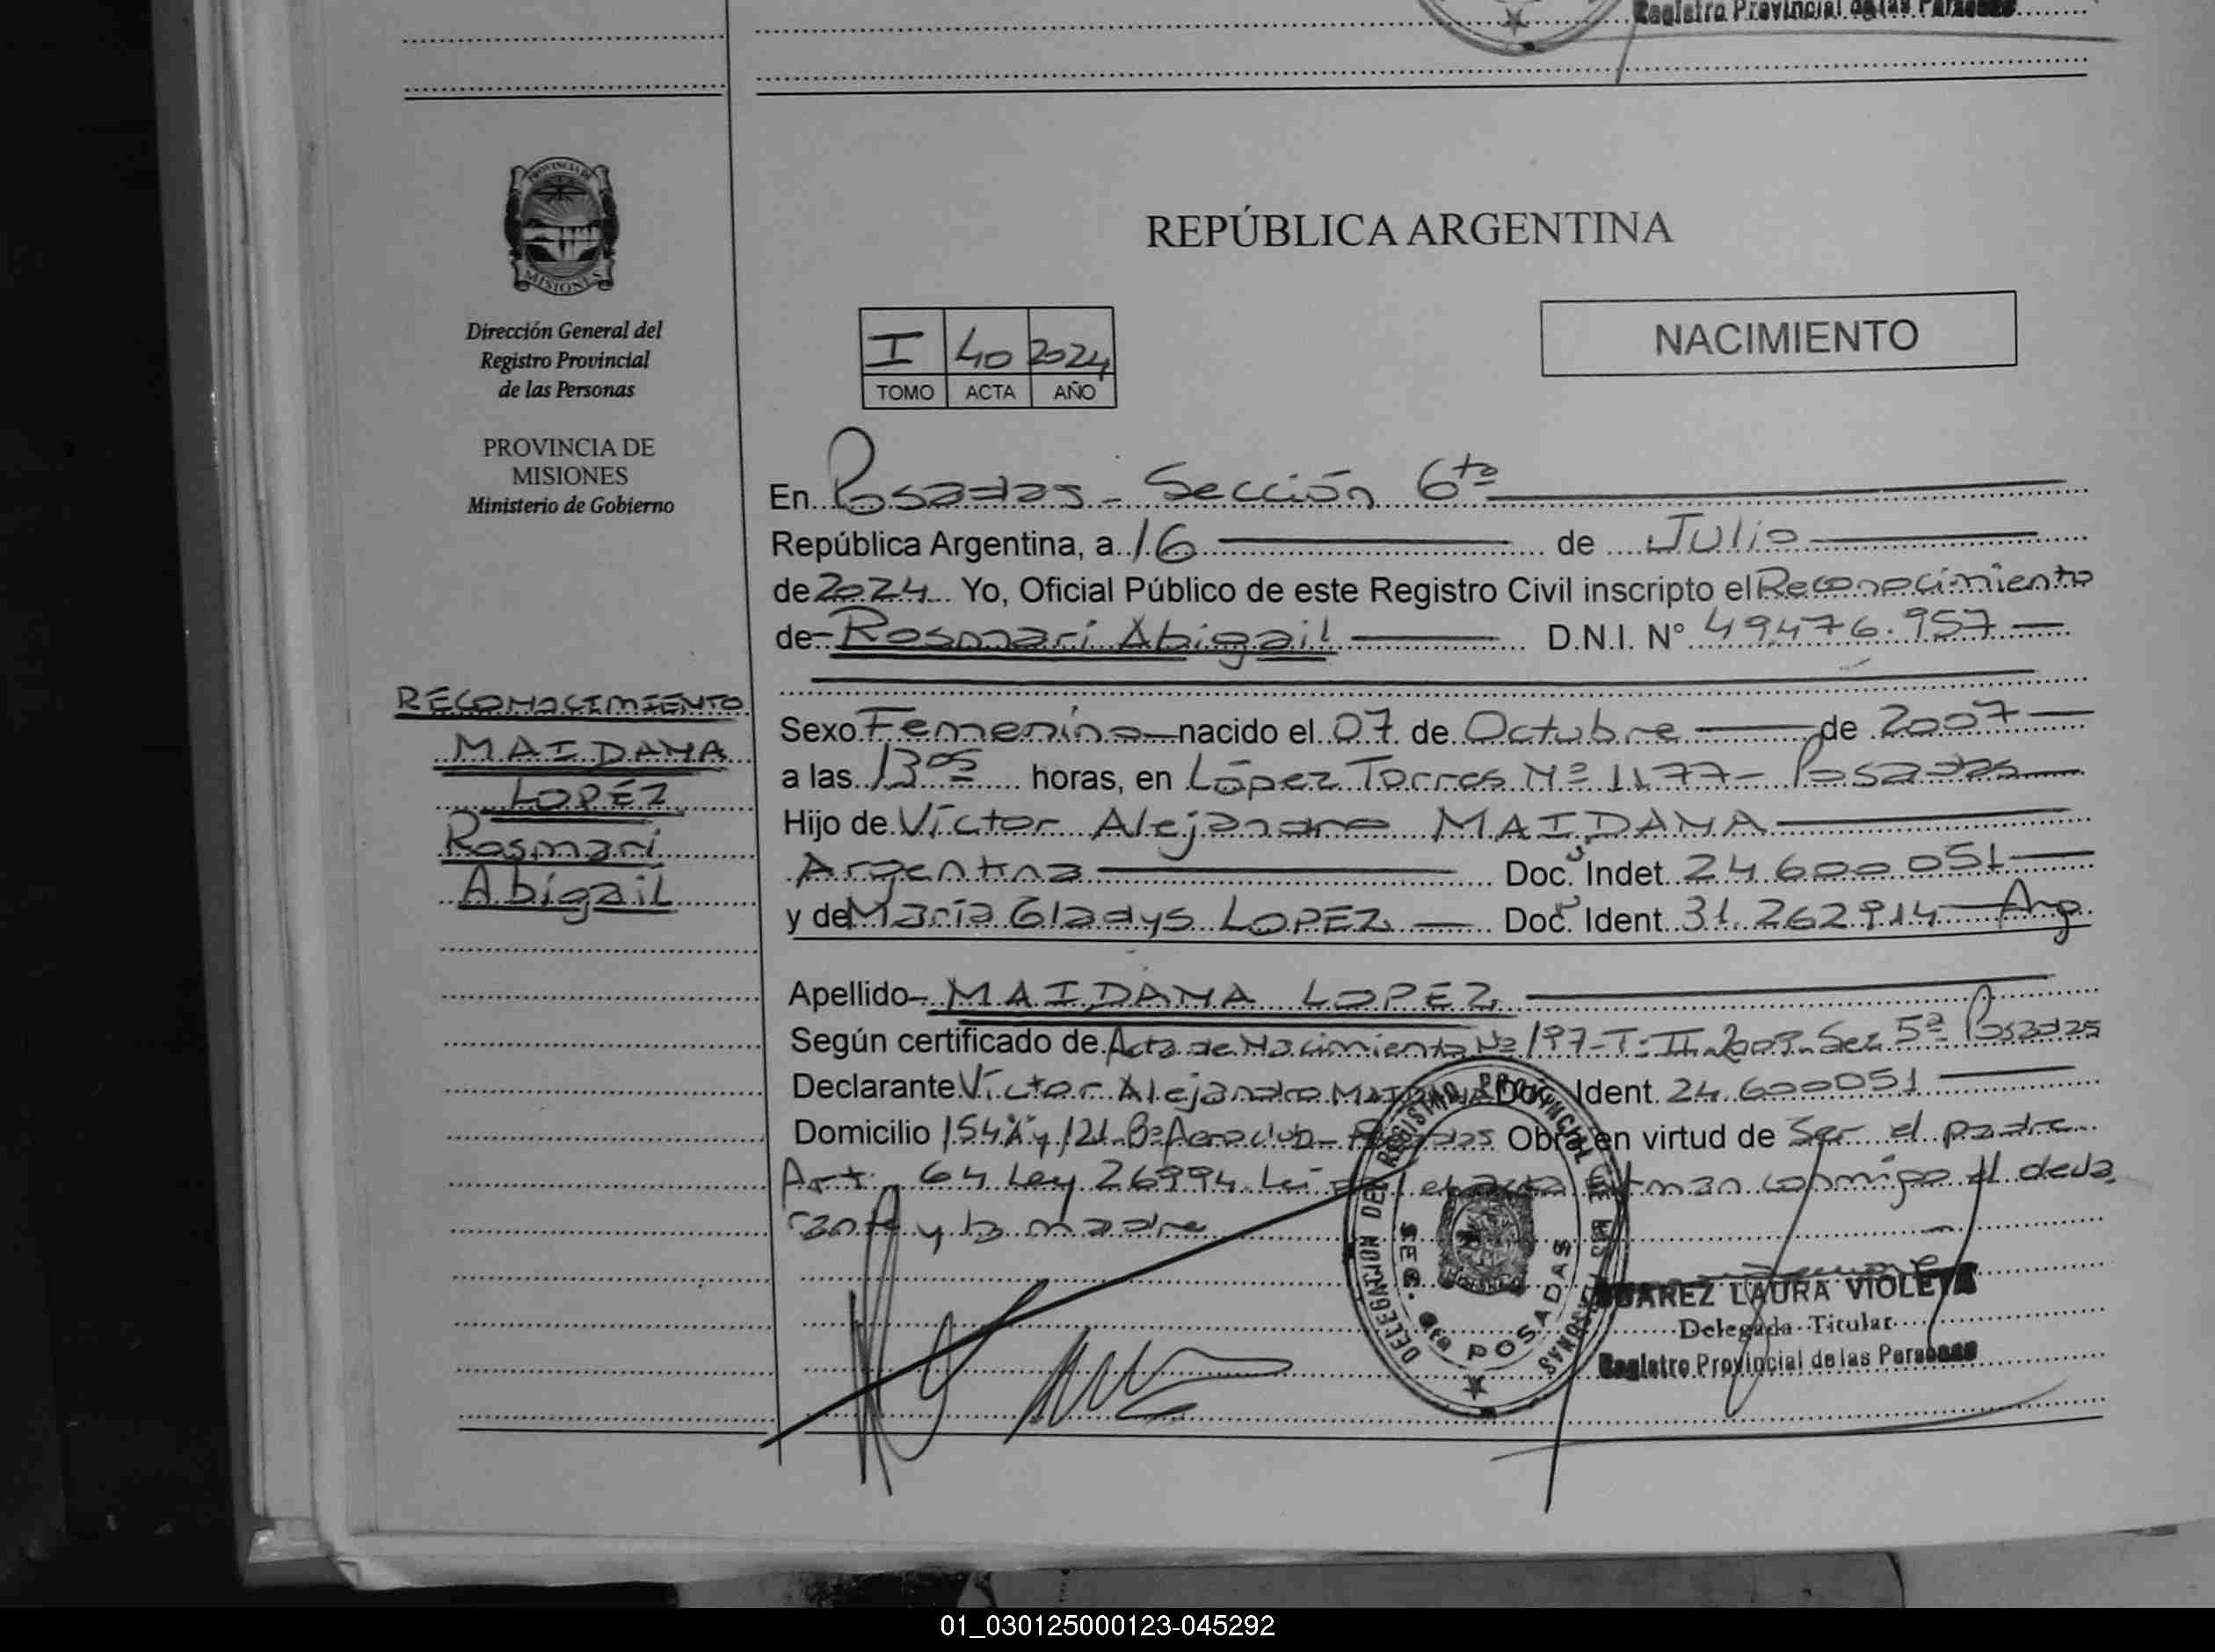 Registro Provincial de las Personas
PROVINCIA DE
MISIONES
Dirección General del
Registro Provincial
de las Personas
PROVINCIA DE
MISIONES
Ministerio de Gobierno
RECONOCIMIENTO
MAIDANA
LOPÉZ
Rosmari
Abigail
REPÚBLICA ARGENTINA
I 40 2024
TOMO ACTA AÑO
NACIMIENTO
En Posadas - Sección 6ta
República Argentina, a 16 de Julio
de 2024 Yo, Oficial Público de este Registro Civil inscripto el Reconocimiento
de Rosmari Abigail D.N.I. N° 49.476.957
Sexo Femenino nacido el 07 de Octubre de 2007
a las 13 05 horas, en López Torres Nº 1177 - Posadas
Hijo de Víctor Alejandro MAIDANA
Argentina Doc. Indet. 24.600.051
y de María Gladys LOPEZ Doc. Ident. 31.262.914 Arg
Apellido MAIDANA LOPEZ
Según certificado de Acta de Nacimiento Nº 197-T:II-2009-Sec 5ª Posadas
Declarante Víctor Alejandro MAIDANA Doc. Ident. 24.600051
Domicilio 154 "A" y 121 Bº Aeroclub - Posadas Obra en virtud de Ser el padre
Art. 64 Ley 26994. Leí el acta firman conmigo el decla
rante y la madre
DELEGACION DEL REGISTRO PROVINCIAL DE LAS PERSONAS
SEC. 6ta POSADAS
SUAREZ LAURA VIOLETA
Delegada Titular
Registro Provincial de las Personas
01_030125000123-045292